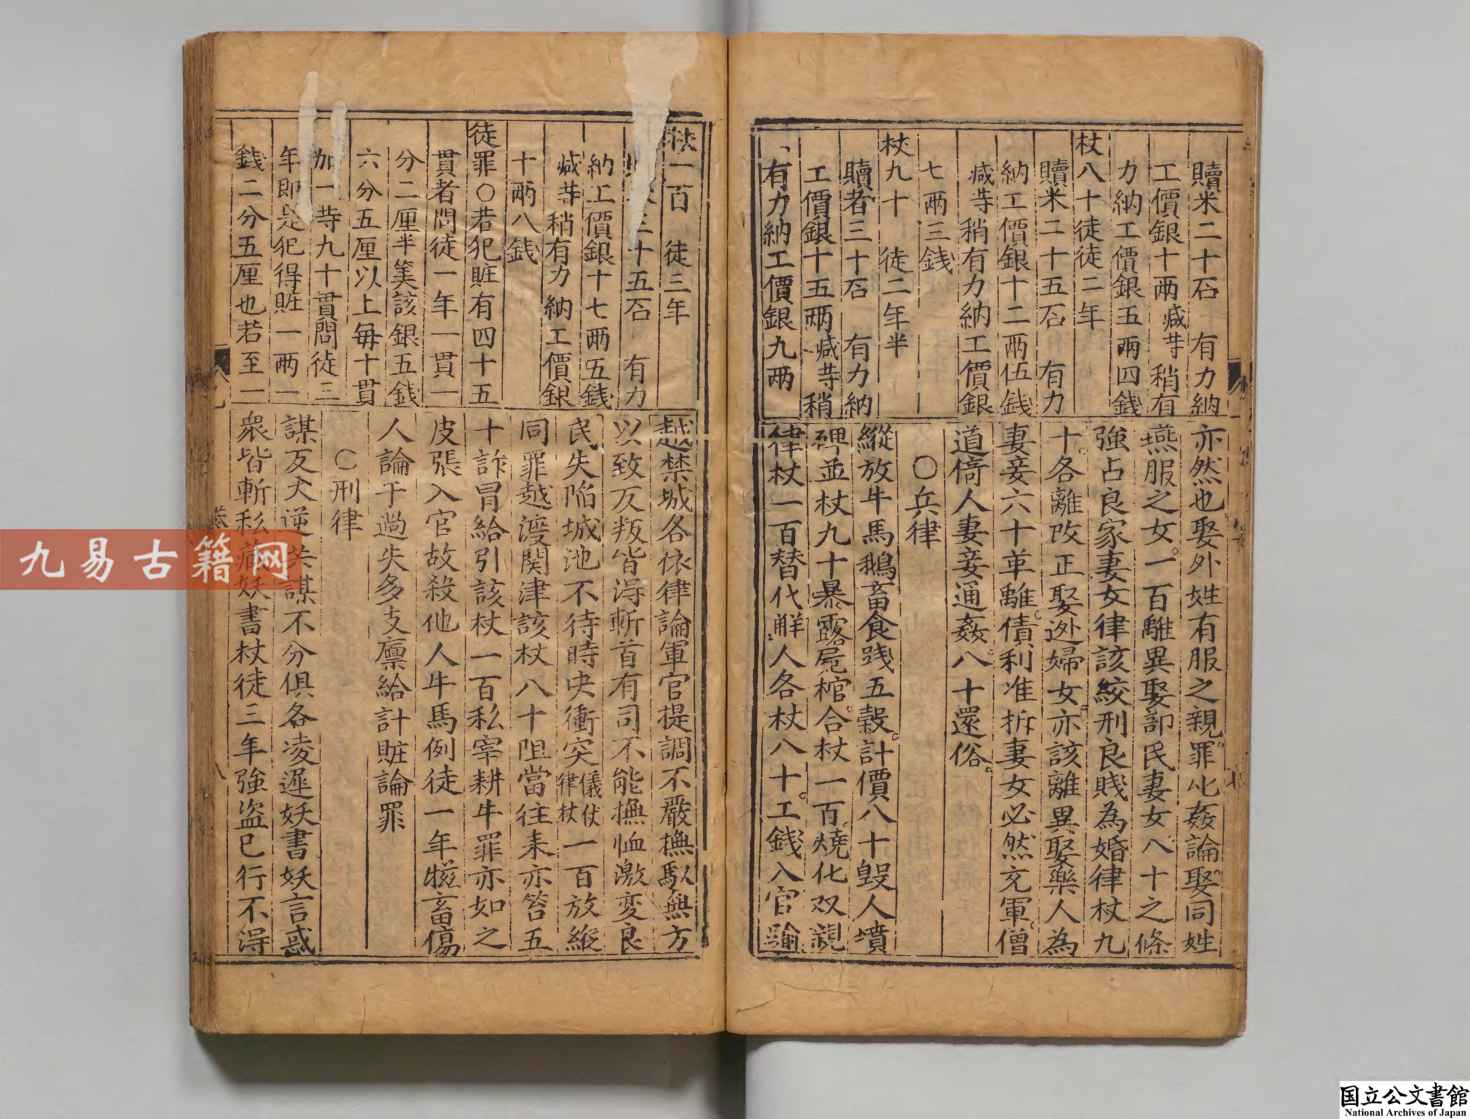 贖米二十石　有力納
工價銀十兩減等　稍有
力納工價銀五兩四錢
杖八十徒徒二年
贖米二十五石　有力
納工價銀十二兩伍錢
減等稍有力納工價銀
七兩三錢
杖九十　徒二年半
贖者三十石　有力納
工價銀十五兩減等稍
有力納工價銀九兩
亦然也娶外姓有服之親罪以姦論娶同姓
燕服之女一百離異娶部民妻女八十之條
強占良家妻女律該絞刑良賤為婚律杖九
十各離改正娶迯婦女亦該離異娶樂人為
妻妾六十革離債利准拆妻女必然充軍僧
道倚人妻妾通姦八十還俗
○兵律
縱放牛馬鵝畜食践五穀計價八十毀人墳
碑並杖九十暴露屍棺合杖一百燒化双親
律杖一百替代觧人各杖八十工錢入官
杖一百　徒三年
三十五石　有力
納工價銀十七兩五錢
減等稍有力納工價銀
十兩八錢
徒罪○若犯賍有四十五
貫者問徒一年一貫一
分二厘半筭該銀五錢
六分五厘以上每十貫
加一等九十貫問徒三
年即是犯得賍一兩一
錢二分五厘也若至二
越禁城各依律論軍官提調不嚴撫馭無方
以致反叛皆淂斬首有司不能撫恤激変良
民失陷城池不待時决衝突儀仗律杖一百放縱
同罪越渡関津該杖八十阻當往来亦笞五
十詐冒給引該杖一百私宰耕牛罪亦如之
皮張入官故殺他人牛馬例徒一年㹀畜傷
人論于過失多支廪給計賍論罪
○刑律
謀反大逆共謀不分俱各凌遲妖書妖言惑
眾皆斬私藏妖書杖徒三年強盗已行不淂
九易古籍网
国立公文書館
National Archives of Japan